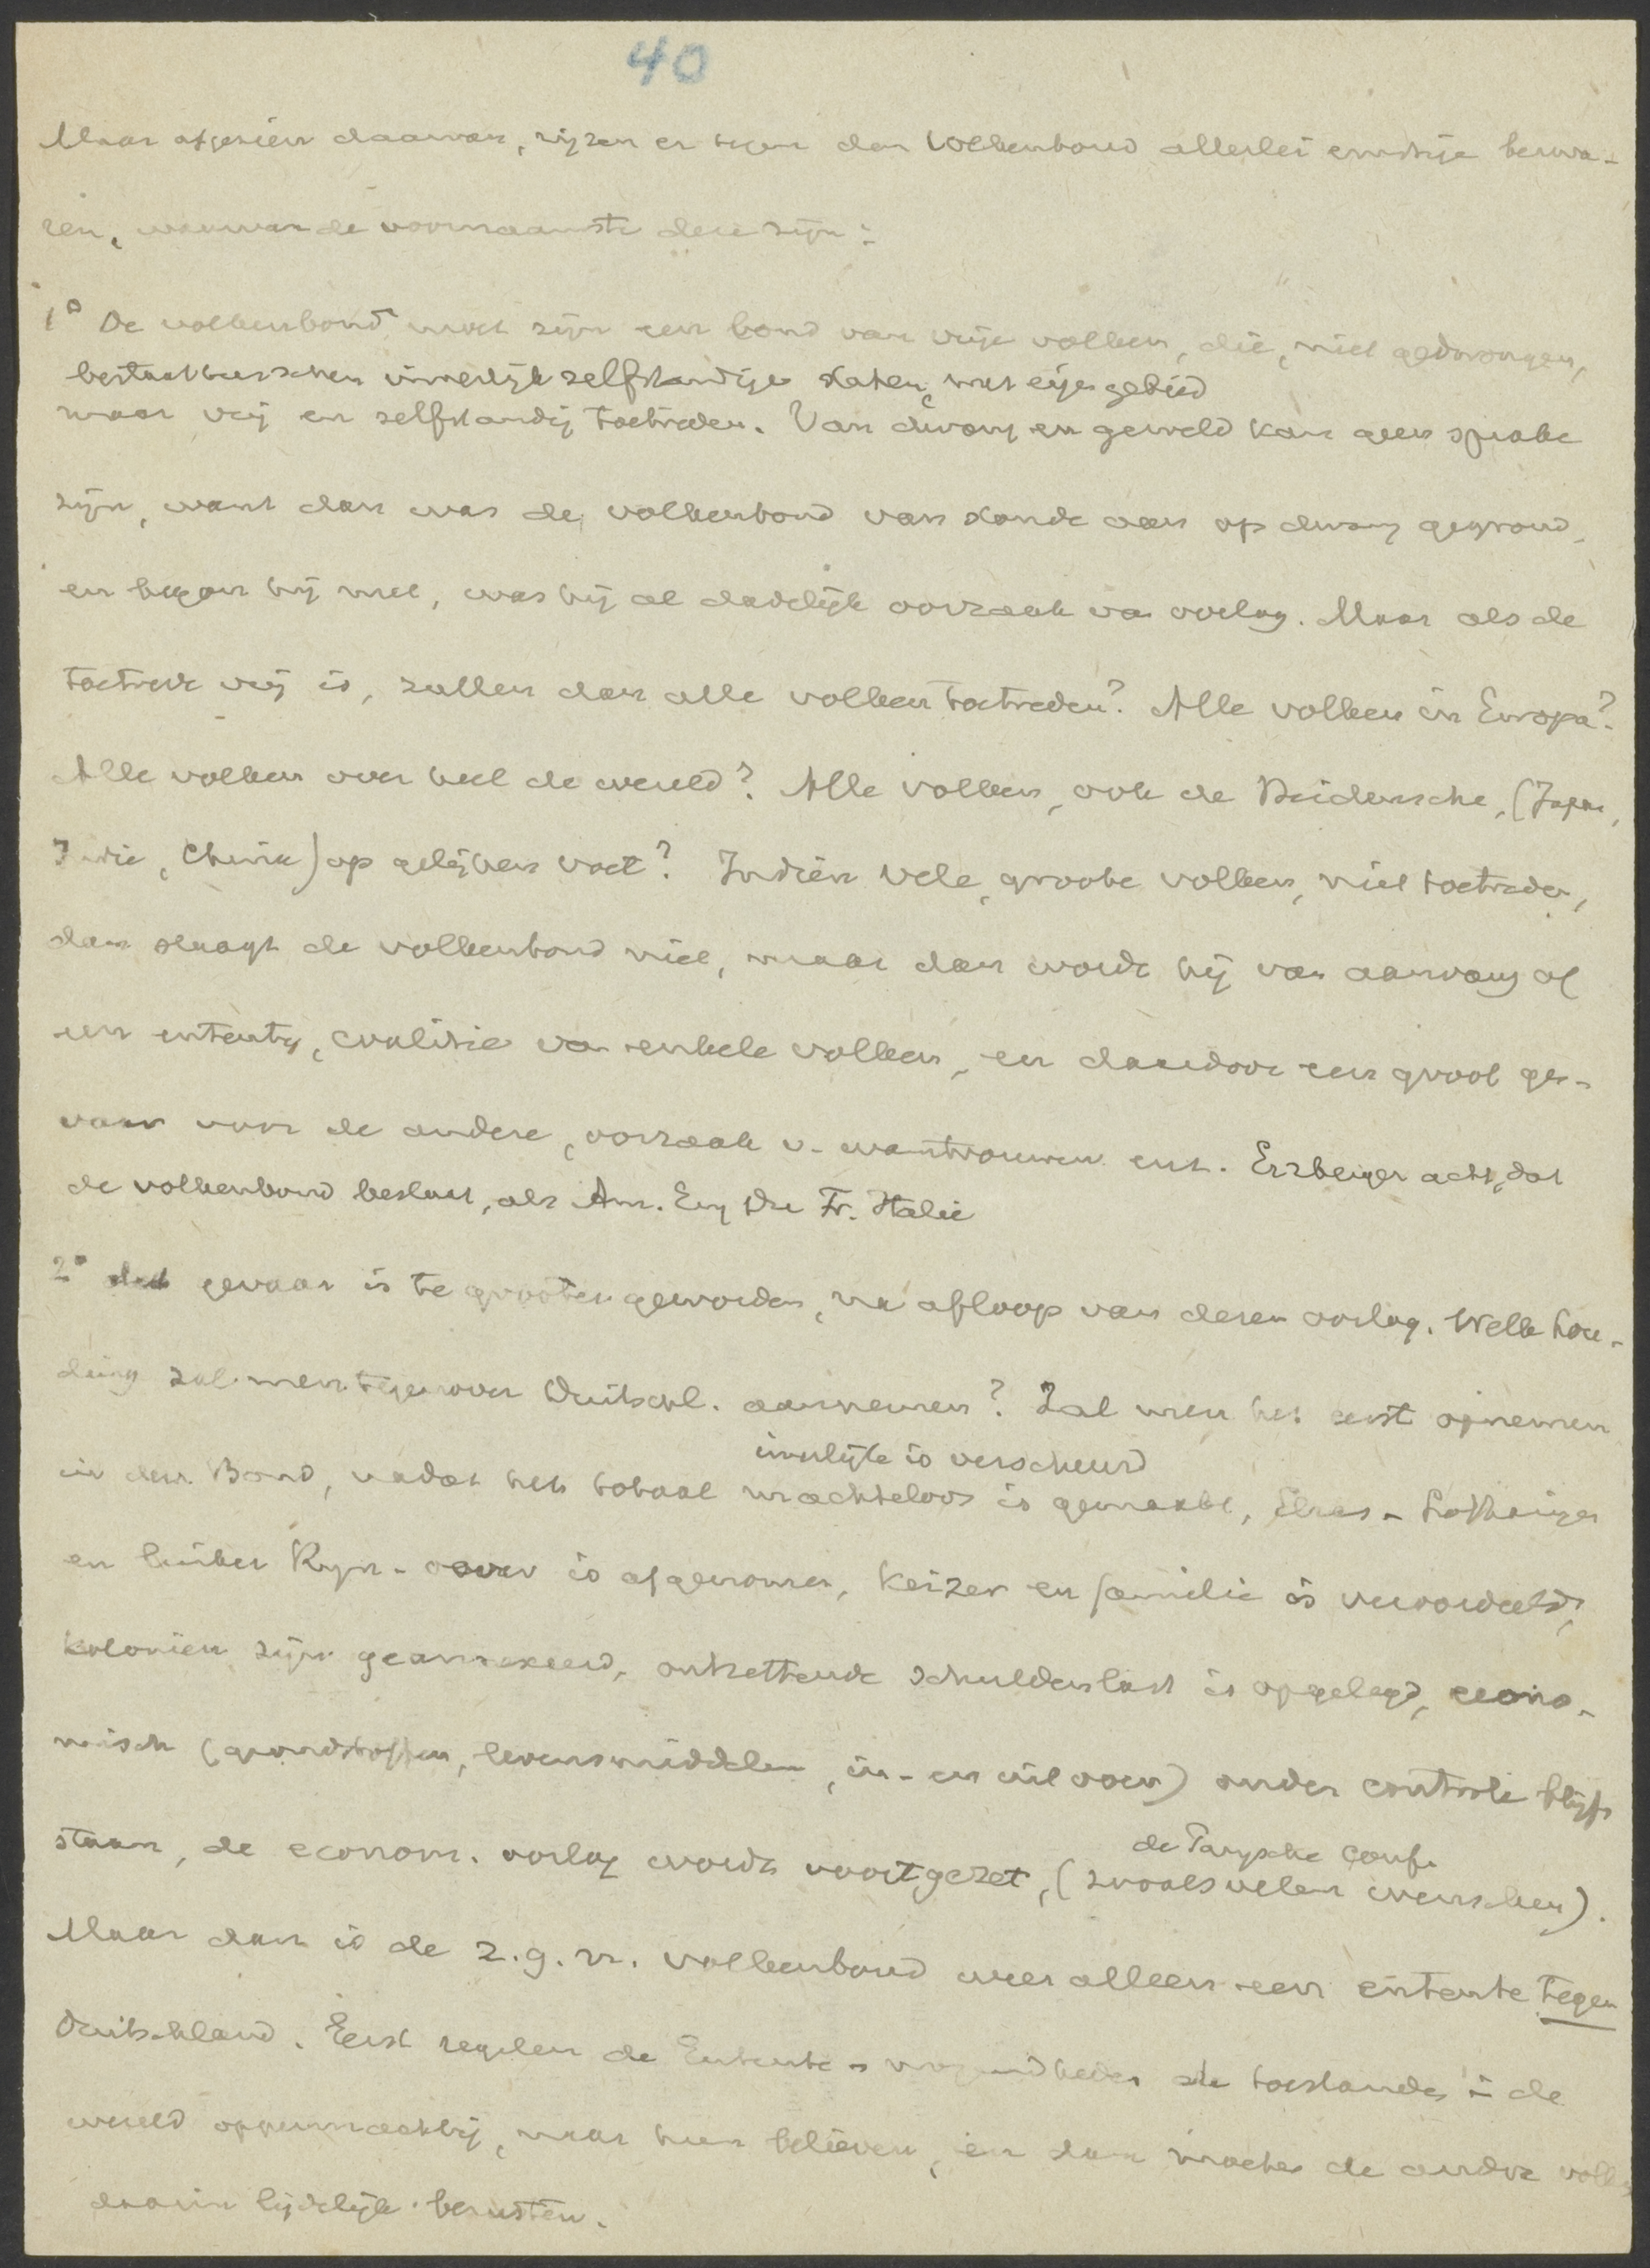 40
Maar afgezien daarvan, rijzen er tegen den Volkenbond allerlei ernstige bezwa-
ren, waarvan de voornaamste deze zijn:
1° De volkenbond moet zijn een bond van vrije volken, die, niet gedwongen,
bestaat tusschen innerlijk zelfstandige staten, met eigen gebied
maar vrij en zelfstandig toetreden. Van dwang en geweld kan geen sprake
zijn, want dan was de volkenbond van stonde aan op dwang gegrond,
en begon hij met, was hij al dadelijk oorzaak van oorlog. Maar als de
toetrede vrij is, zullen dan alle volken toetreden? Alle volken in Europa?
Alle volken over heel de wereld? Alle volken, ook de Heidensche, (Japan,
Indie, China) op gelijken voet? Indien vele, groote volken, niet toetreden,
dan slaagt de volkenbond niet, maar dan wordt hij van aanvang af
een entente, coalitie van enkele volken, en daardoor een groot ge-
vaar voor de andere, oorzaak v. wantrouwen enz. Erzberger acht, dat
de volkenbond bestaat, als Am. Eng. Du. Fr. Italie
2° dat gevaar is te grooter geworden, na afloop van dezen oorlog. Welke hou-
ding zal men tegenover Duitschl. aannemen? Zal men het eerst opnemen
innerlijk is verscheurd
in den Bond, nadat het totaal machteloos is gemaakt, Elzas-Lotharingen
en linker Rijn-oever is afgenomen, keizer en familie is veroordeeld,
koloniën zijn geannexeerd, ontzettende schuldenlast is opgelegd, econo-
misch (grondstoffen, levensmiddelen, in- en uitvoer) onder controle blijft
staan, de econom. oorlog wordt voortgezet, (zooals velen wenschen).
de Parijsche Conf.
Maar dan is de z.g.n. volkenbond weer alleen een entente tegen
Duitschland. Eerst regelen de Entente-mogendheden de toestanden in de
wereld oppermachtig, naar hun believen, en dan mogen de andere volken
daarin lijdelijk berusten.